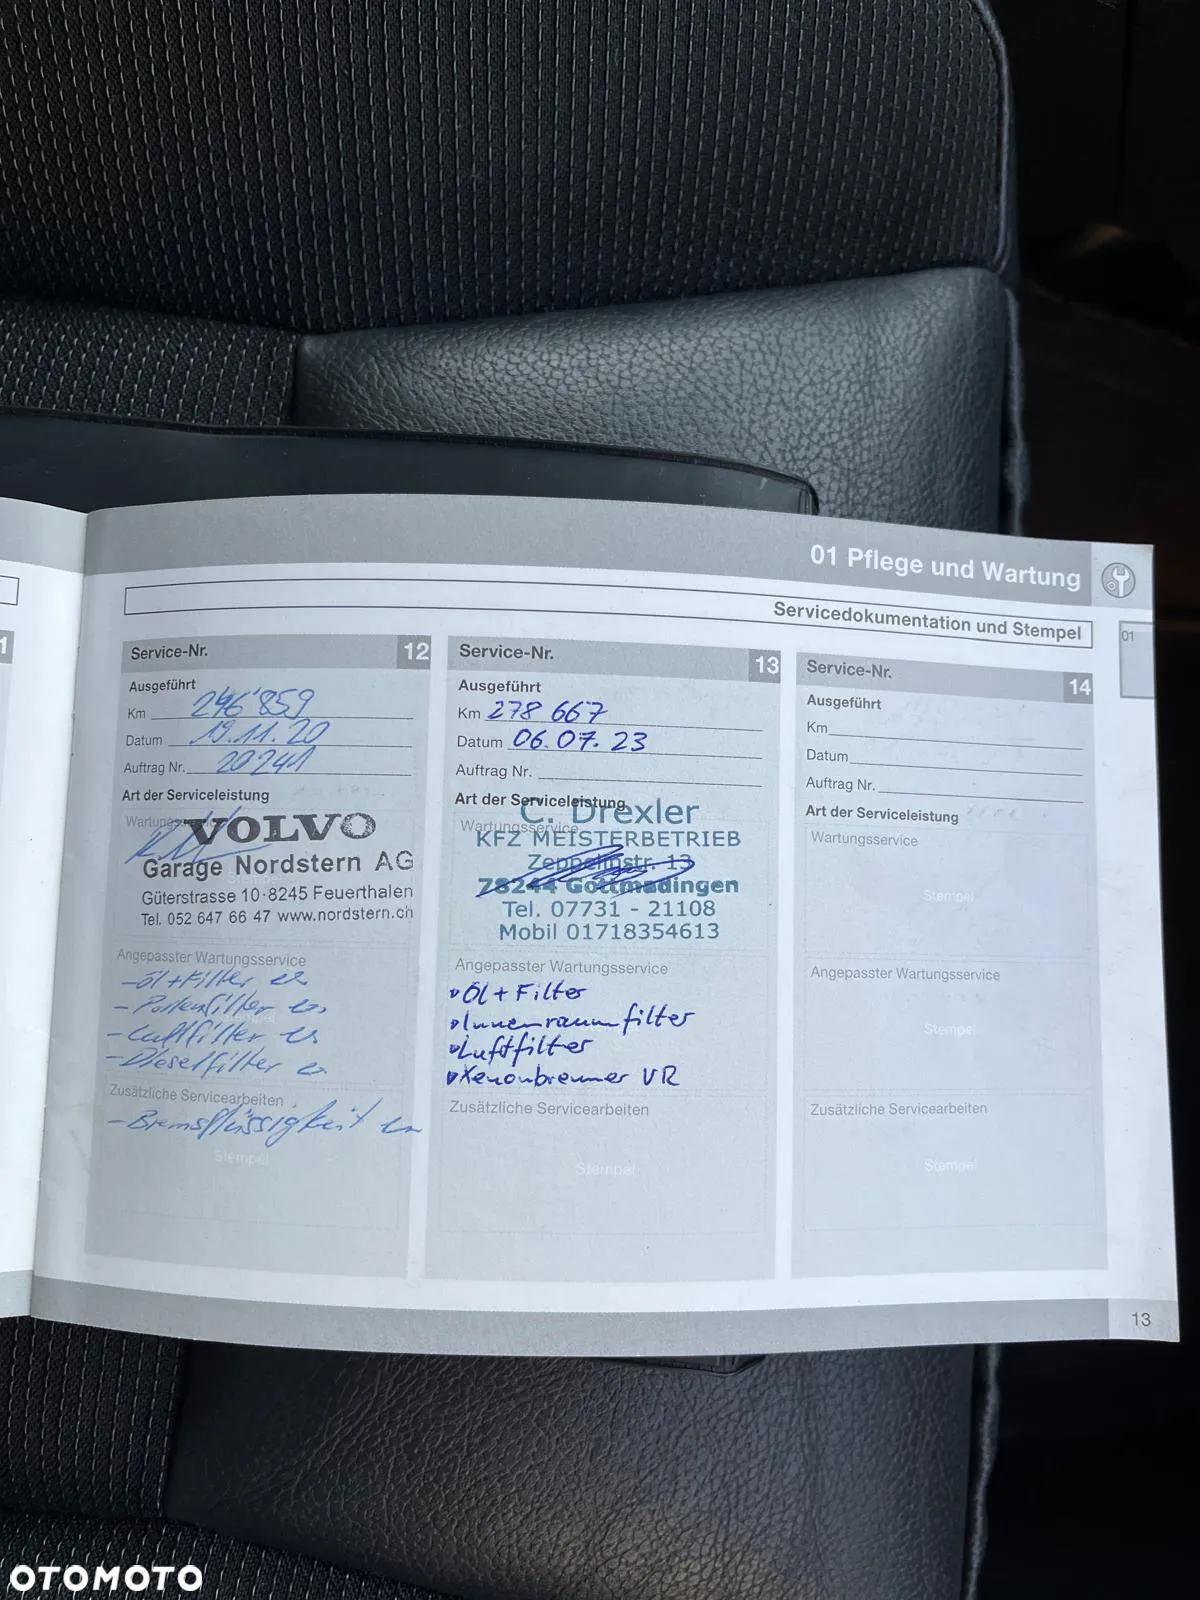 01 Pflege und Wartung
Servicedokumentation und Stempel
01
1
Service-Nr. 12
Ausgeführt
Km 246'859
Datum 19.11.20
Auftrag Nr. 20241
Art der Serviceleistung
Wartungsservice
VOLVO
Garage Nordstern AG
Güterstrasse 10·8245 Feuerthalen
Tel. 052 647 66 47 www.nordstern.ch
Angepasster Wartungsservice
-Öl+Filter
-Pollenfilter
-Luftfilter
-Dieselfilter
Zusätzliche Servicearbeiten
-Bremsflüssigkeit
Stempel
Service-Nr. 13
Ausgeführt
Km 278 667
Datum 06.07.23
Auftrag Nr.
Art der Serviceleistung
Wartungsservice
C. Drexler
KFZ MEISTERBETRIEB
Zeppelinstr. 13
78244 Gottmadingen
Tel. 07731 - 21108
Mobil 01718354613
Angepasster Wartungsservice
Öl + Filter
Innenraumfilter
Luftfilter
Xenonbrenner VR
Zusätzliche Servicearbeiten
Stempel
Service-Nr. 14
Ausgeführt
Km
Datum
Auftrag Nr.
Art der Serviceleistung
Wartungsservice
Stempel
Angepasster Wartungsservice
Stempel
Zusätzliche Servicearbeiten
Stempel
13
OTOMOTO